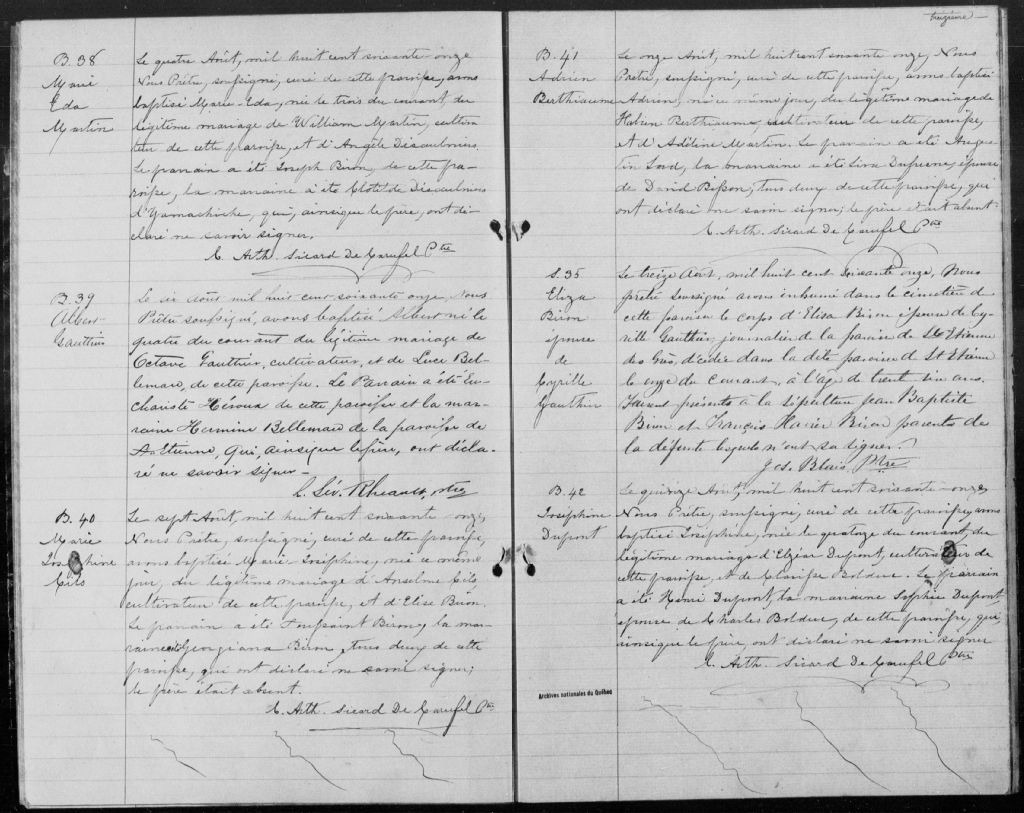 B. 38
Marie
Eda
Martin
Le quatre Août, mil huit cent soixante onze
Nous Prêtre, soussigné, curé de cette paroisse, avons
baptisé Marie-Eda, née le trois du courant, du
légitime mariage de William Martin, cultiva
teur de cette paroisse, et d'Angèle Desaulniers.
Le parrain a été Joseph Biron, de cette pa-
roisse, la marraine a été Clotilde Desaulniers
d'Yamachiche, qui, ainsi que le père, ont dé-
claré ne savoir signer.
C. Arth. Sicard De Carufel Ptre
B. 39
Albert
Gauthier
Le six août mil huit cent soixante onze, Nous
Prêtre soussigné, avons baptisé Albert né le
quatre du courant du légitime mariage de
Octave Gauthier, cultivateur, et de Luce Bel-
lemare, de cette paroisse. Le Parrain a été Eu-
chariste Héroux de cette paroisse et la mar-
raine Hermine Bellemare de la paroisse de
St Etienne, Qui, ainsi que le père, ont décla-
ré ne savoir signer -
L. Sév. Rheault, ptre
B. 40
Marie
Josephine
Cils
Le sept Août, mil huit cent soixante-onze,
Nous Prêtre, soussigné, curé de cette paroisse,
avons baptisé Marie Joséphine, née ce même
jour, du légitime mariage d'Anselme Cils
cultivateur de cette paroisse, et d'Elise Biron.
Le parrain a été Toussaint Biron, la mar
raine Georgiana Biron, tous deux de cette
paroisse, qui ont déclaré ne savoir signer;
le père était absent.
C. Arth. Sicard De Carufel Ptre
treizième -
B. 41
Adrien
Berthiaume
Le onze Août, mil huit cent soixante onze, Nous
Prêtre, soussigné, curé de cette paroisse, avons baptisé
Adrien, né ce même jour, du légitime mariage de
Berthiaume, cultivateur de cette paroisse,
et d'Adéline Martin. Le parrain a été Augus
tin Lord, la marraine a été Dufresne, épouse
de David Bisson, tous deux de cette paroisse, qui
ont déclaré ne savoir signer; le père était absent.
C. Arth. Sicard De Carufel Ptre
S. 35
Eliza
Biron
épouse
de
Cyrille
Gauthier
Le treize Août, mil huit cent soixante onze, Nous
prêtre soussigné avons inhumé dans le cimetière de
cette paroisse le corps d'Elisa Biron épouse de Cy-
rille Gauthier, journalier de la paroisse de St Etienne
des Grès, décédée dans la dite paroisse d St Etienne
le onze du courant, à l'âge de trent six ans.
Furent présents a la sépulture Jean Baptiste
Biron et François Xavier Biron parents de
la défunte lesquels n'ont su signer.
Jos. Blais, Ptre
B. 42
Joséphine
Dupont
Le quinze Août, mil huit cent soixante-onze,
Nous Prêtre, soussigné, curé de cette paroisse, avons
baptisé Joséphine, née le quatorze du courant, du
légitime mariage d'Elzéar Dupont, cultivateur de
cette paroisse, et de Clarisse Bolduc. Le parrain
a été Henri Dupont, la marraine Sophie Dupont,
épouse de Charles Bolduc, de cette paroisse, qui,
ainsi que le père, ont déclaré ne savoir signer
C. Arth. Sicard De Carufel Ptre
Archives nationales du Québec